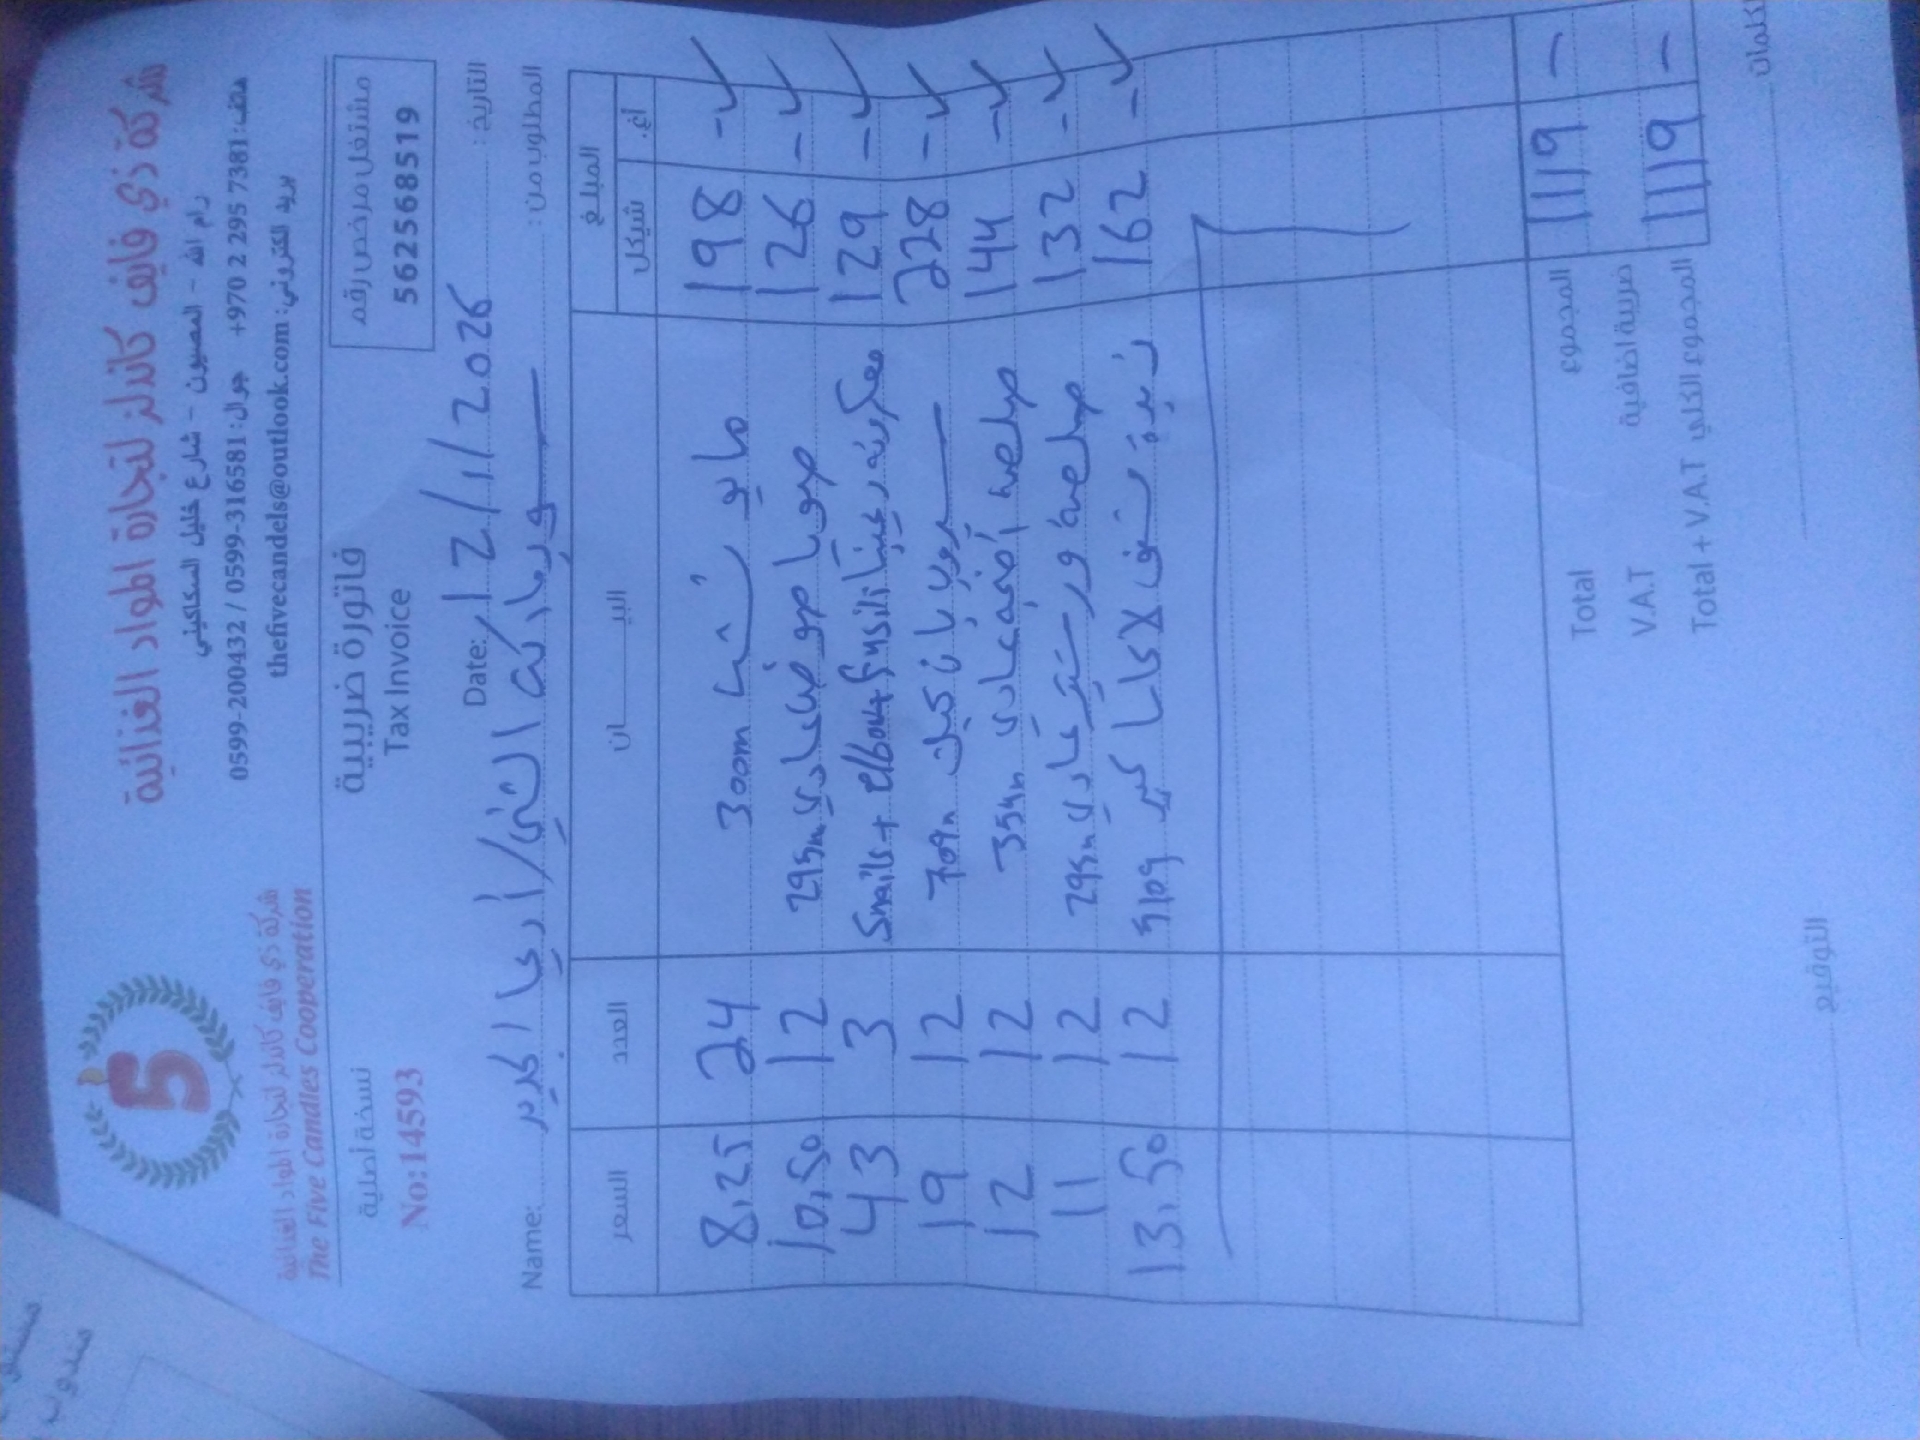 شركة ذي فايف كاندلز لتجارة المواد الغذائية
رام الله - المصيون - شارع خليل السكاكيني
هاتف: +970 2 295 7381 جوال: 0599-200432 / 0599-3165581
بريد الكتروني: thefivecandels@outlook.com
5
شركة ذي فايف كاندلز لتجارة المواد الغذائية
The Five Candles Cooperation
نسخة أصلية
No:14593
فاتورة ضريبية
Tax Invoice
مشتغل مرخص رقم
562568519
التاريخ: 12/1/2026 Date:
المطلوب من: سوبرماركت / Name:
المبلغ
شيكل أغ. البيـــــان العدد السعر
198 - مايو 300m 24 8,25
126 - صويا صوص عادي 295m 12 10,50
129 - معكرونة snails + elbow + fusili 3 43
228 - 709 12 19
144 - 354m 12 12
132 - 295m 12 11
162 - 510g 12 13,50
1119 - المجموع Total
ضريبة اضافية V.A.T
1119 - المجموع الكلي Total + V.A.T
التوقيع